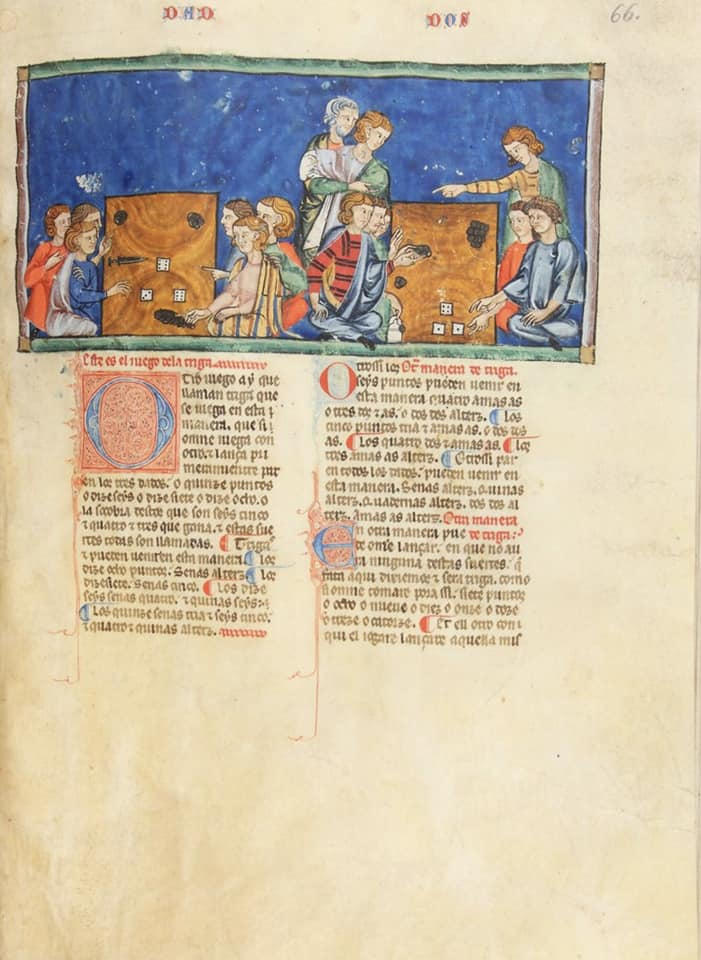 DAD
DOS
66.
Este es el iuego dela triga
Otro iuego a y que
llaman triga que
se iuega en esta
manera. que si
omne iuega con
otro. τ lança pri
meramientre par
en los tres dados. o quinze puntos
o dizeseys o dize siete o dize ocho. o
la soçobra destos que son seys cinco
τ quatro τ tres que gana. τ estas sue
rtes todas son llamadas. Triga
τ pueden uenir en esta manera Los
dize ocho puntos. Senas alterz Los
dizesiete. Senas cinco. Los dize
seys senas quatro. τ quinas seys.
Los quinze senas tria τ seys cinco.
τ quatro τ quinas alterz.
Otrossi los Otra manera de triga.
seys puntos pueden uenir en
esta manera quatro amas as
o tres dos τ as. o dos dos alterz. Los
cinco puntos tria τ amas as. o dos dos
as. Los quatro dos τ amas as. Los
tres amas as alterz. Otrossi par
en todos los dados. pueden uenir en
esta manera. Senas alterz. quinas
alterz. quadernas alterz. dos dos al
terz. amas as alterz. Otra manera
En otra manera pue de triga:
de omne lançar. en que no au
ra ninguna destas suertes. q
fata aqui dixiemos τ sera triga. como
si omne tomare pora ssi. siete puntos
o ocho o nueue o diez o onze o doze
o treze o catorze. Et ell otro con
qui el iogare lançare aquella mis